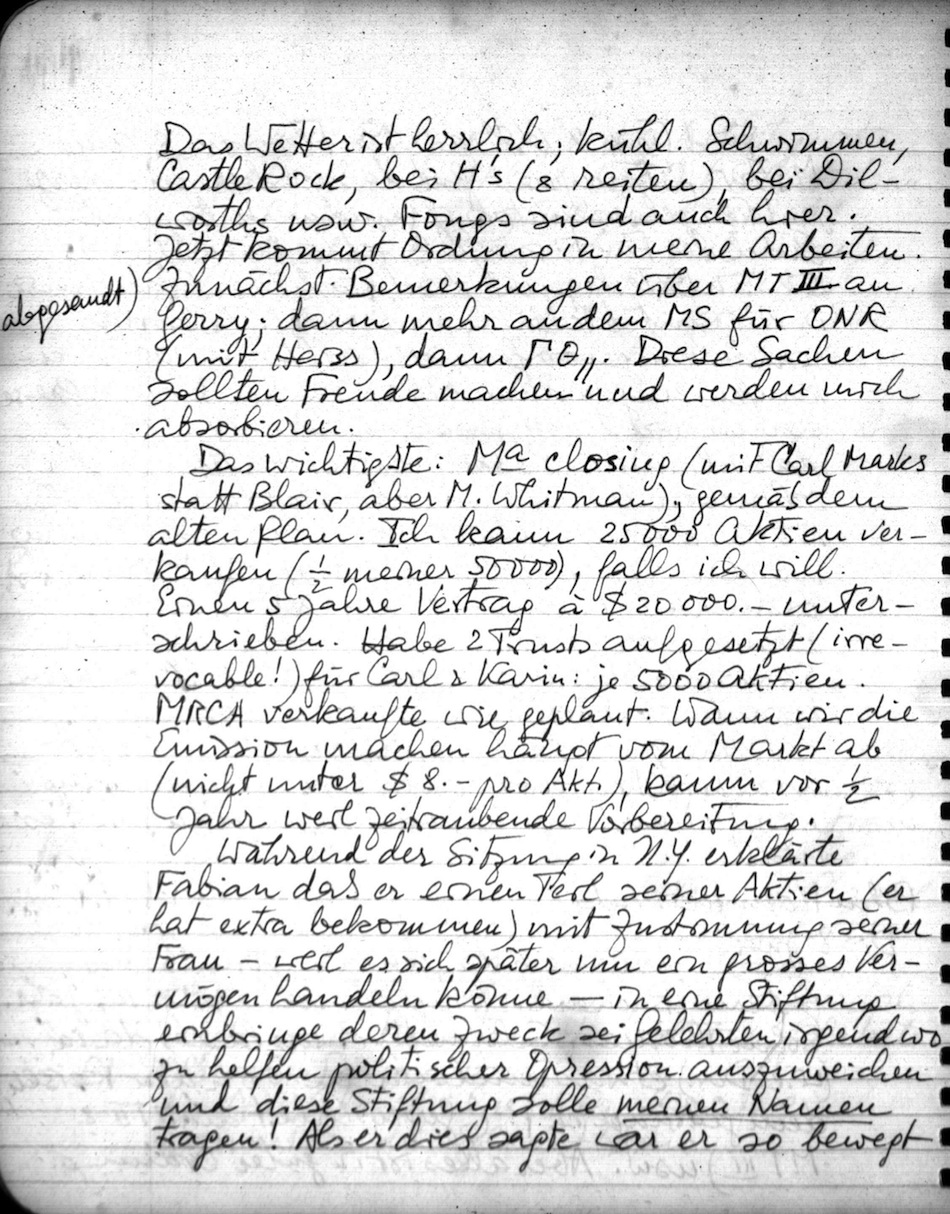 Das Wetter ist herrlich; kühl. Schwimmen,
Castle Rock, bei H's (& reiten), bei Dil-
worths usw. Fongs sind auch hier.
Jetzt kommt Ordnung in meine Arbeiten.
abgesandt) Zunächst Bemerkungen über MT III an
Gerry; dann mehr an dem MS für ONR
(mit Heiss), dann ΓΘ„. Diese Sachen
sollten Freude machen und werden mich
absorbieren.
Das wichtigste: Ma closing (mit Carl Marks
statt Blair, aber M. Whitman), gemäs dem
alten Plan. Ich kann 25000 Aktien ver-
kaufen (½ meiner 50000), falls ich will.
Einen 5 Jahre Vertrag à $20000.– unter-
schrieben. Habe 2 Trusts aufgesetzt (irre-
vocable!) für Carl & Karin: je 5000 Aktien.
MRCA verkaufte wie geplant. Wann wir die
Emission machen hängt vom Markt ab
(nicht unter $8.– pro Akt.), kaum vor ½
Jahr weil zeitraubende Vorbereitung.
Während der Sitzung in N.Y. erklärte
Fabian das er einen Teil seiner Aktien (er
hat extra bekommen) mit Zustimmung seiner
Frau – weil es sich später um ein grosses Ver-
mögen handeln könne — in eine Stiftung
einbringe deren Zweck sei Gelehrten irgendwo
zu helfen politischer Opression auszuweichen
und diese Stiftung solle meinen Namen
tragen! Als er dies sagte war er so bewegt